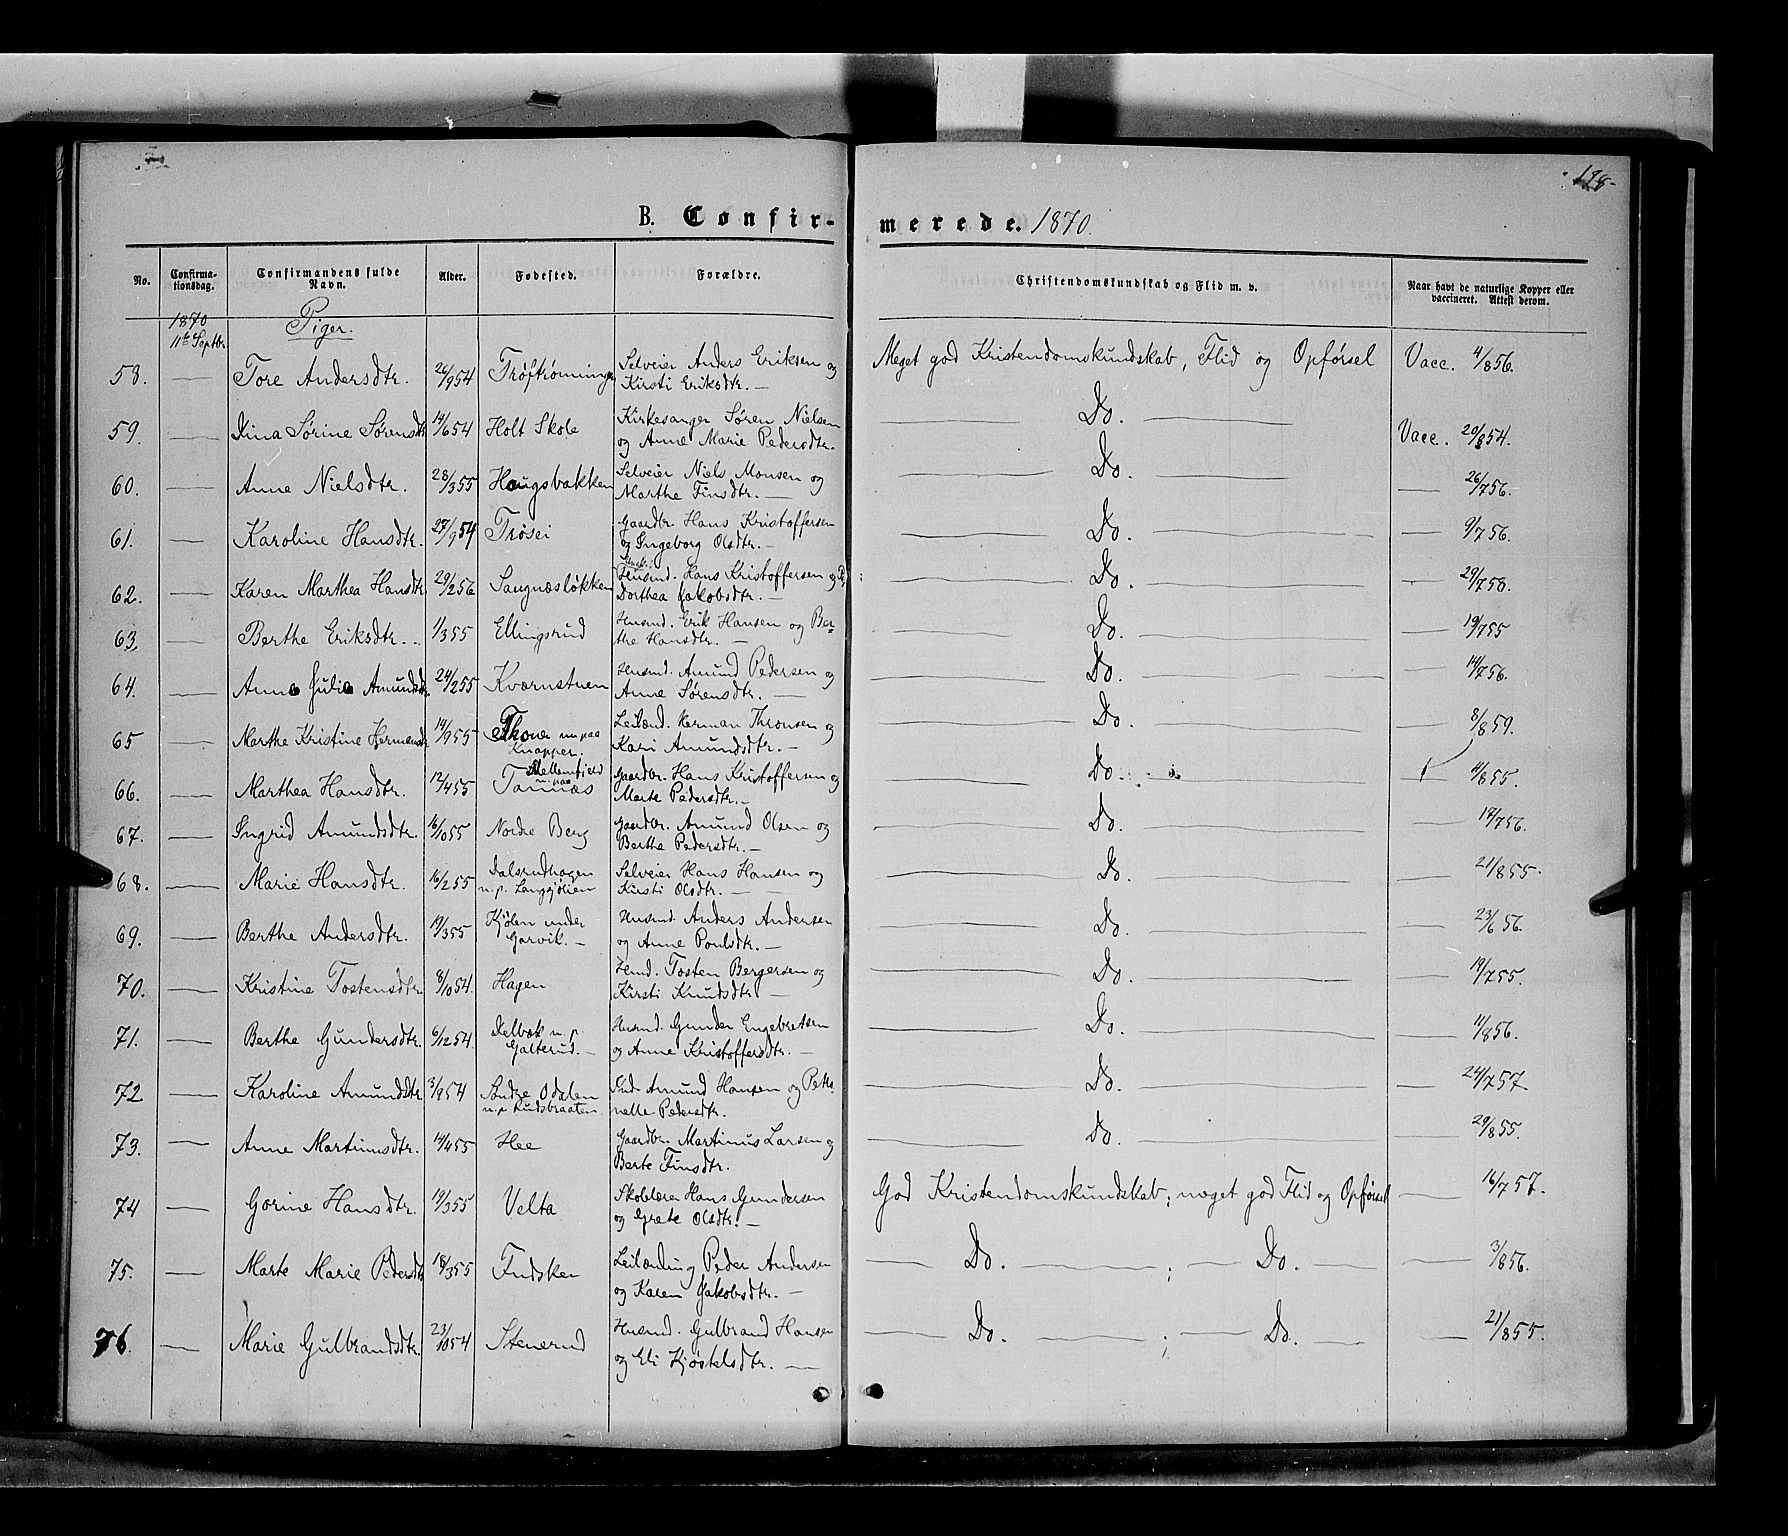 118.
B. Confirmerede. 1870.
No. Confirmationsdag. Confirmandens fulde Navn. Alder. Fødested. Forældre. Christendomskundskab og Flid m. v. Naar havt de naturlige Kopper eller vaccineret. Attest derom.
1870 11te Septbr. Piger.
58. — Tore Andersdtr. 26/9 54 Trøftrønningen Selveier Anders Eriksen og Kirsti Eriksdtr. — Meget god Kristendomskundskab, Flid og Opførsel Vacc. 4/8 56.
59. — Dina Sørine Sørensdtr 14/6 54 Holt Skole Kirkesanger Søren Nielsen og Anne Marie Pedersdtr. — Do. — Vacc. 20/8 54.
60. — Anne Nielsdtr. 28/3 55 Haugsbakken Selveier Niels Monsen og Marthe Finsdtr. — Do. — 26/7 56.
61. — Karoline Hansdtr. 27/9 54 Trøsei Gaardbr. Hans Kristoffersen og Ingeborg Olsdtr. — Do. — 9/7 56.
62. — Karen Marthea Hansdtr 29/2 56 Sangnæsløkken Husmd. Hans Kristoffersen og Dorthea Jakobsdtr. — Do. — 29/7 58.
63. — Berthe Eriksdtr. 1/3 55 Ellingsrud Husmd. Erik Hansen og Berthe Hansdtr. — Do. — 19/7 55
64. — Anne Julie Amundsdtr 24/2 55 Kværnstuen Husmd. Amund Pedersen og Anne Sørensdtr. — Do. — 14/7 56.
65 — Marthe Kristine Hermansdtr 14/9 55 Thoner nu paa Knapper. Leilænd. Herman Thronsen og Kari Amundsdtr. — Do. — 8/8 59.
66. — Marthea Hansdtr. 12/4 55 Mellemfield nu paa Tannæs Gaardbr. Hans Kristoffersen og Marte Pedersdtr. — Do. — 4/8 55.
67. — Ingrid Amundsdtr. 16/10 55 Nordre Berg Gaardbr. Amund Olsen og Berthe Pedersdtr. — Do. — 17/7 56.
68. — Marie Hansdtr. 16/2 55 Dalsrudhagen n. p. Langjølien Selveier Hans Hansen og Kirsti Olsdtr. — Do. — 21/8 55.
69. — Berthe Andersdtr. 19/3 55 Kjølen under Garvik. — Husmd. Anders Andersen og Anne Poulsdtr. — Do. — 23/6 56.
70. — Kristine Tostensdtr 8/10 54. Hagen Husmd. Tosten Bergersen og Kirsti Knudsdtr. — Do. — 19/7 55.
71. — Berthe Gundersdtr. 6/12 54. n. p. Galterud. — Husmd. Gunder Engebretsen og Anne Kristoffersdtr. — Do. — 11/8 56.
72 — Karoline Amundsdtr 3/9 54 Søndre Odalen n. p. Rudsbraaten. Amund Hansen og Petronelle Pedersdtr. — Do. — 24/7 57.
73. — Anne Martinusdtr. 14/4 55 Hee Gaardbr. Martinus Larsen og Berte Finsdtr. — Do. — 29/8 55.
74 — Gorine Hansdtr. 19/3 55 Velta Skolelærer Hans Gundersen og Grete Olsdtr. — God Kristendomskundskab; meget god Flid og Opførsel — 16/7 57.
75. — Marte Marie Pedersdtr 18/3 55 Fudsker Leilænding Peder Andersen og Karen Jakobsdtr. — Do. — ; — Do. — 3/8 56.
76. — Marie Gulbrandsdtr. 23/10 54 Stenerud Husmd. Gulbrand Hansen og Eli Kjøstelsdtr. — Do. — ; — Do. — 21/8 55.